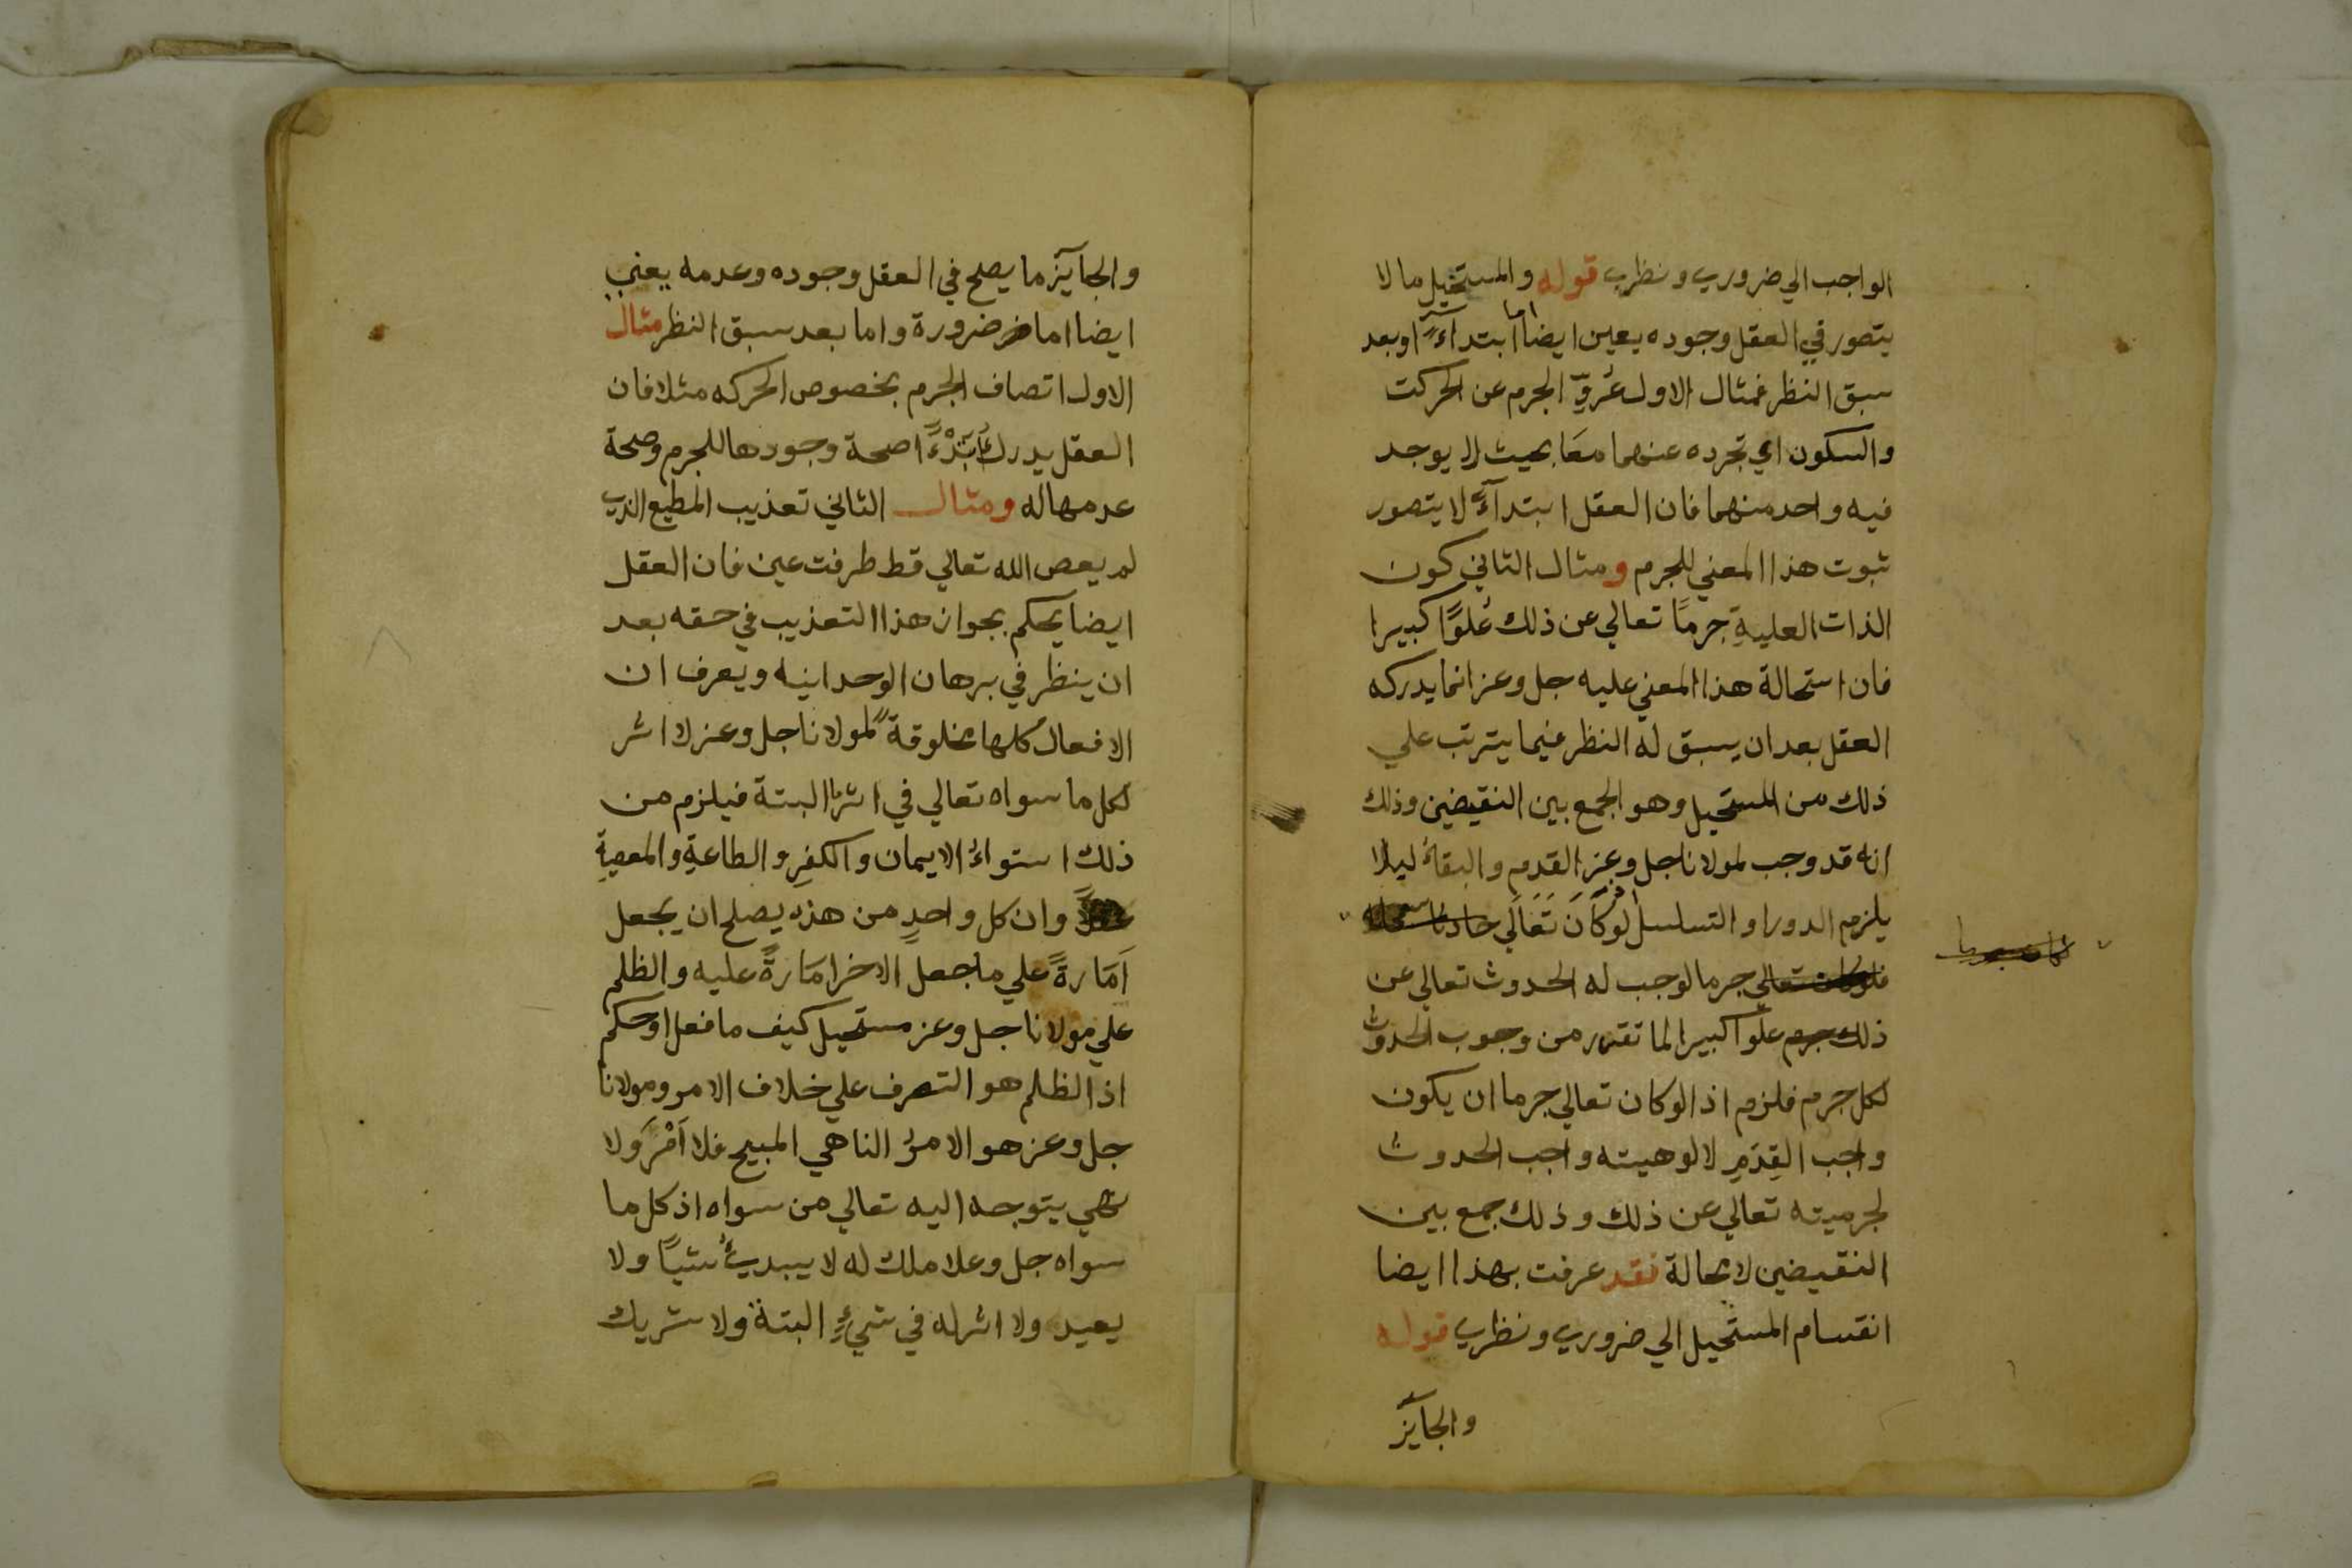 الواجب الي ضروري ونظري قوله والمستحيل ما لا
يتصور في العقل وجوده يعين ايضا اما ابتداءً او بعد
سبق النظر فمثال الاول عُرِوّ الجرم عن الحركت
والسكون اي تجرده عنهما معَا بحيث لا يوجد
فيه واحد منهما فان العقل ابتداءً لا يتصور
ثبوت هذا المعني للجرم ومثال الثاني كون
الذات العليةِ جرمًا تعالي عن ذلك عُلوًا كبيرا
فان استحالة هذا المعني عليه جل وعز انما يدركه
العقل بعد ان يسبق له النظر فيما يترتب علي
ذلك من المستحيل وهو الجمع بين النقيضين وذلك
انه قد وجب لمولانا جل وعز القدم والبقاءُ ليلا
يلزم الدور او التسلسل لو كَانَ تَعَالَي حادثا
فلو كان تعالي جرما لوجب له الحدوث تعالي عن
ذلك علوّا كبيرا لما تقرر من وجوب الحدوث
لكل جرم فلزم اذا لو كان تعالي جرما ان يكون
واجب القِدَمِ لالوهيته واجب الحدوث
لجرميته تعالي عن ذلك وذلك جمع بين
النقيضين لا محالة فقد عرفت بهذا ايضا
انقسام المستحيل الي ضروري ونظري قوله
والجايٓز
والجايٓز ما يصلح في العقل وجوده وعدمه يعني
ايضا اما ضرورة واما بعد سبق النظر مثال
الاول اتصاف الجرم بخصوص الحركه مثلا فان
العقل يدرك ابتدءًا صحة وجودها للجرم وصحة
عدمها له ومثال الثاني تعذيب المطيع الذي
لم يعص الله تعالي قط طرفت عين فان العقل
ايضا يحكم بجواز هذا التعذيب في حقه بعد
ان ينظر في برهان الوحدانيه ويعرف ان
الافعال كلها مخلوقةً لمولانا جل وعز لا اثر
لكل ما سواه تعالي في اثرٍ ما البتة فيلزم من
ذلك استواءُ الايمان والكفرِ والطاعةِ والمعصيةِ
عقلاً وان كل واحدٍ من هذه يصلح ان يجعل
اَمَارةً علي ما جعل الاخر امَارةً عليه والظلم
علي مولانا جل وعز مستحيل كيف ما فعل او حكم
اذ الظلم هو التصرف علي خلاف الامر ومولانا
جل وعز هو الامرُ الناهي المبيح فلا اَمْرَ ولا
نهي يتوجه اليه تعالي من سواه اذ كل ما
سواه جل وعلا ملك له لا يبديُ شيًا ولا
يعيد ولا اثر له في شيءٍ البتة ولا شريك